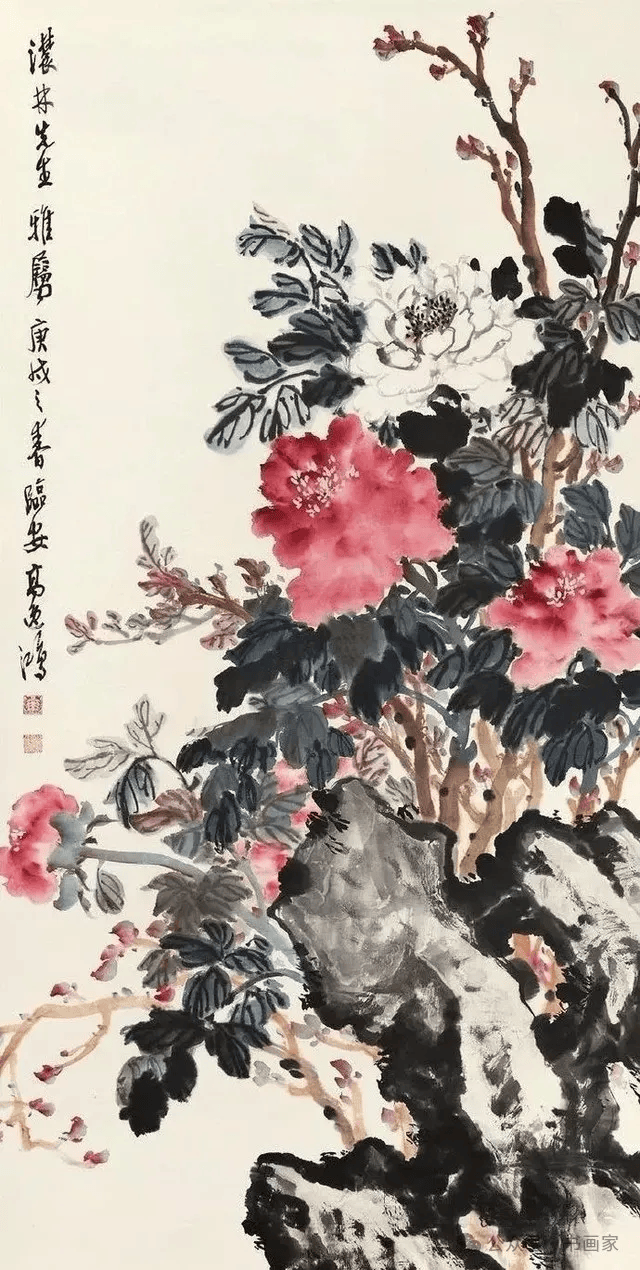 濃林先生雅屬庚戌之春臨安高逸鴻
公众号 书画家